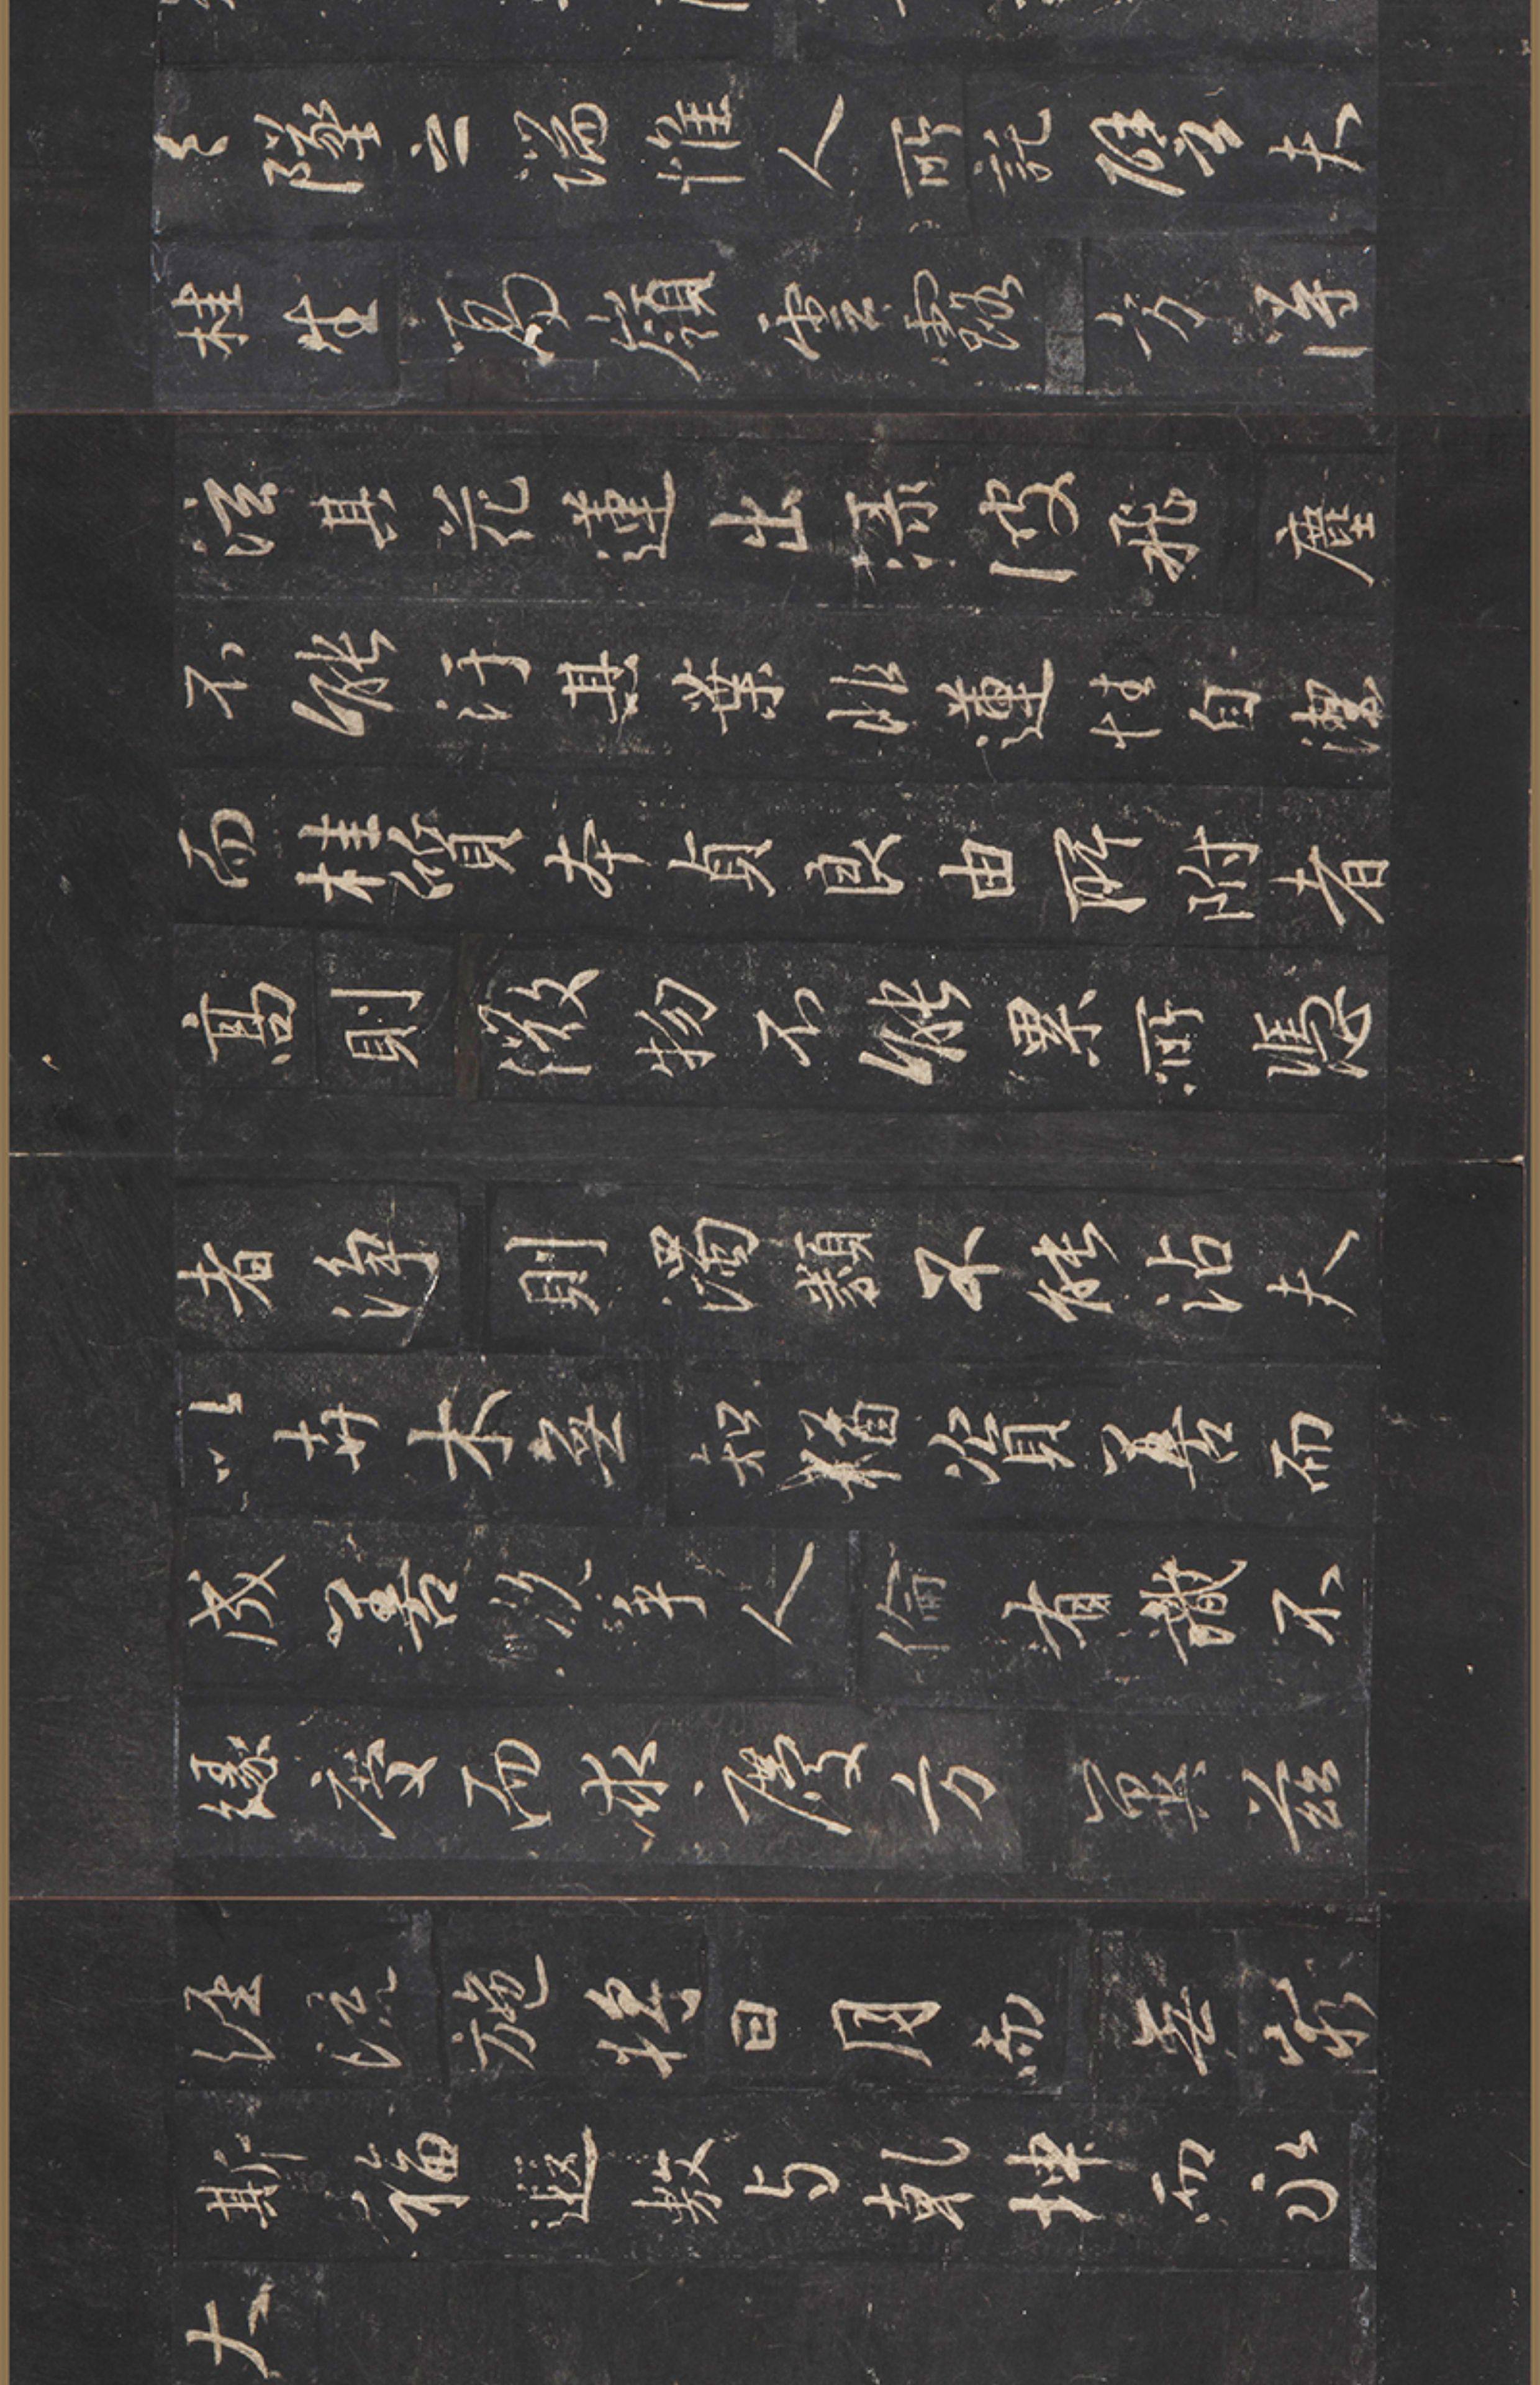 〻墜之端惟人所託譬夫
桂生高嶺雲露方得
泫其花蓮出淥波飛塵
不能汙其葉非蓮性自潔
而桂質本貞良由所附者
高則微物不能累所憑
者淨則濁類不能沾夫
以卉木無知猶資善而
成善況乎人倫有識不
緣慶而求慶方冀茲
經流施將日月而無窮
斯福遐敷與乾坤而永
大